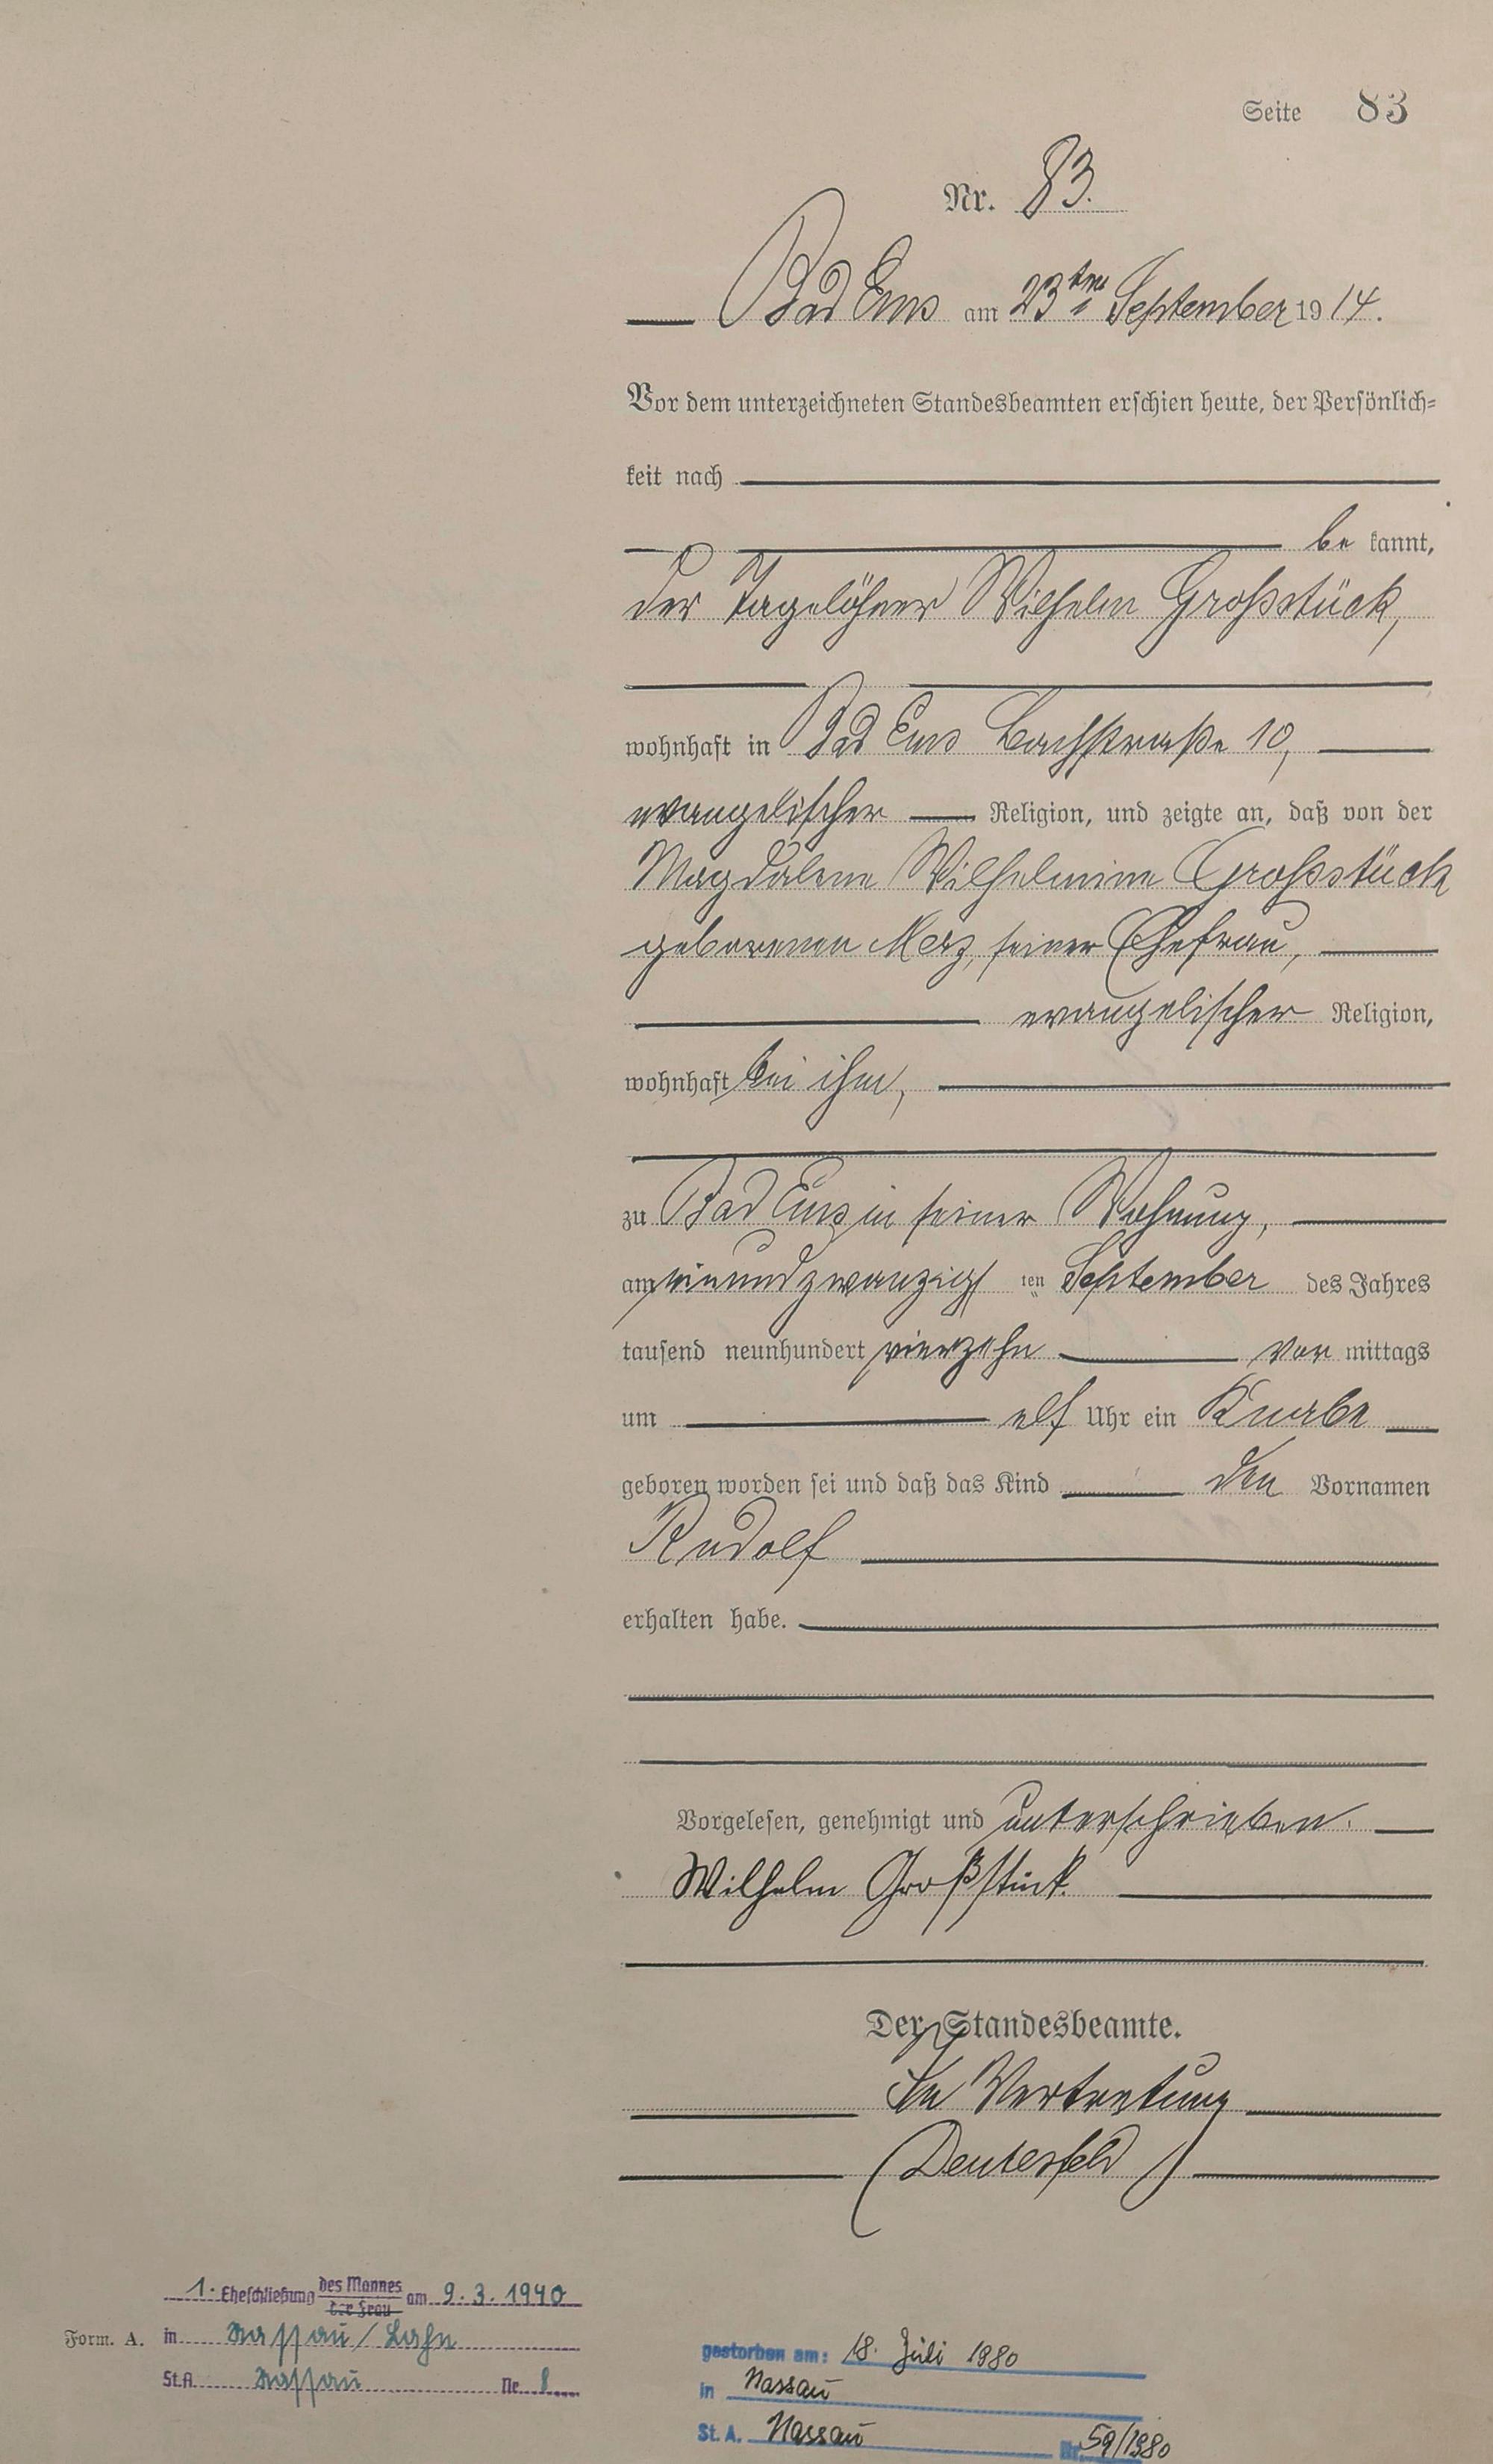 Seite 83
Nr. 83.
Bad Ems am 23ten September 1914.
Vor dem unterzeichneten Standesbeamten erschien heute, der Persönlich-
keit nach
be kannt,
der Tagelöhner Wilhelm Großstück,
wohnhaft in Bad Ems Bachstraße 10,
evangelischer Religion, und zeigte an, daß von der
Magdalene Wilhelmine Großstück
geborenen Merz, seiner Ehefrau,
evangelischer Religion,
wohnhaft bei ihm,
zu Bad Ems in seiner Wohnung,
am einundzwanzigsten September des Jahres
tausend neunhundert vierzehn vor mittags
um elf Uhr ein Knabe
geboren worden sei und daß das Kind den Vornamen
Rudolf
erhalten habe.
Vorgelesen, genehmigt und unterschrieben.
Wilhelm Großstück.
Der Standesbeamte.
In Vertretung
(Deutesfeld)
1. Eheschließung des Mannes der Frau am 9.3.1940
Form. A. in Nassau/Lahn
St.A. Nassau Nr. 8
gestorben am: 18. Juli 1980
in Nassau
St. A. Nassau Nr. 59/1980